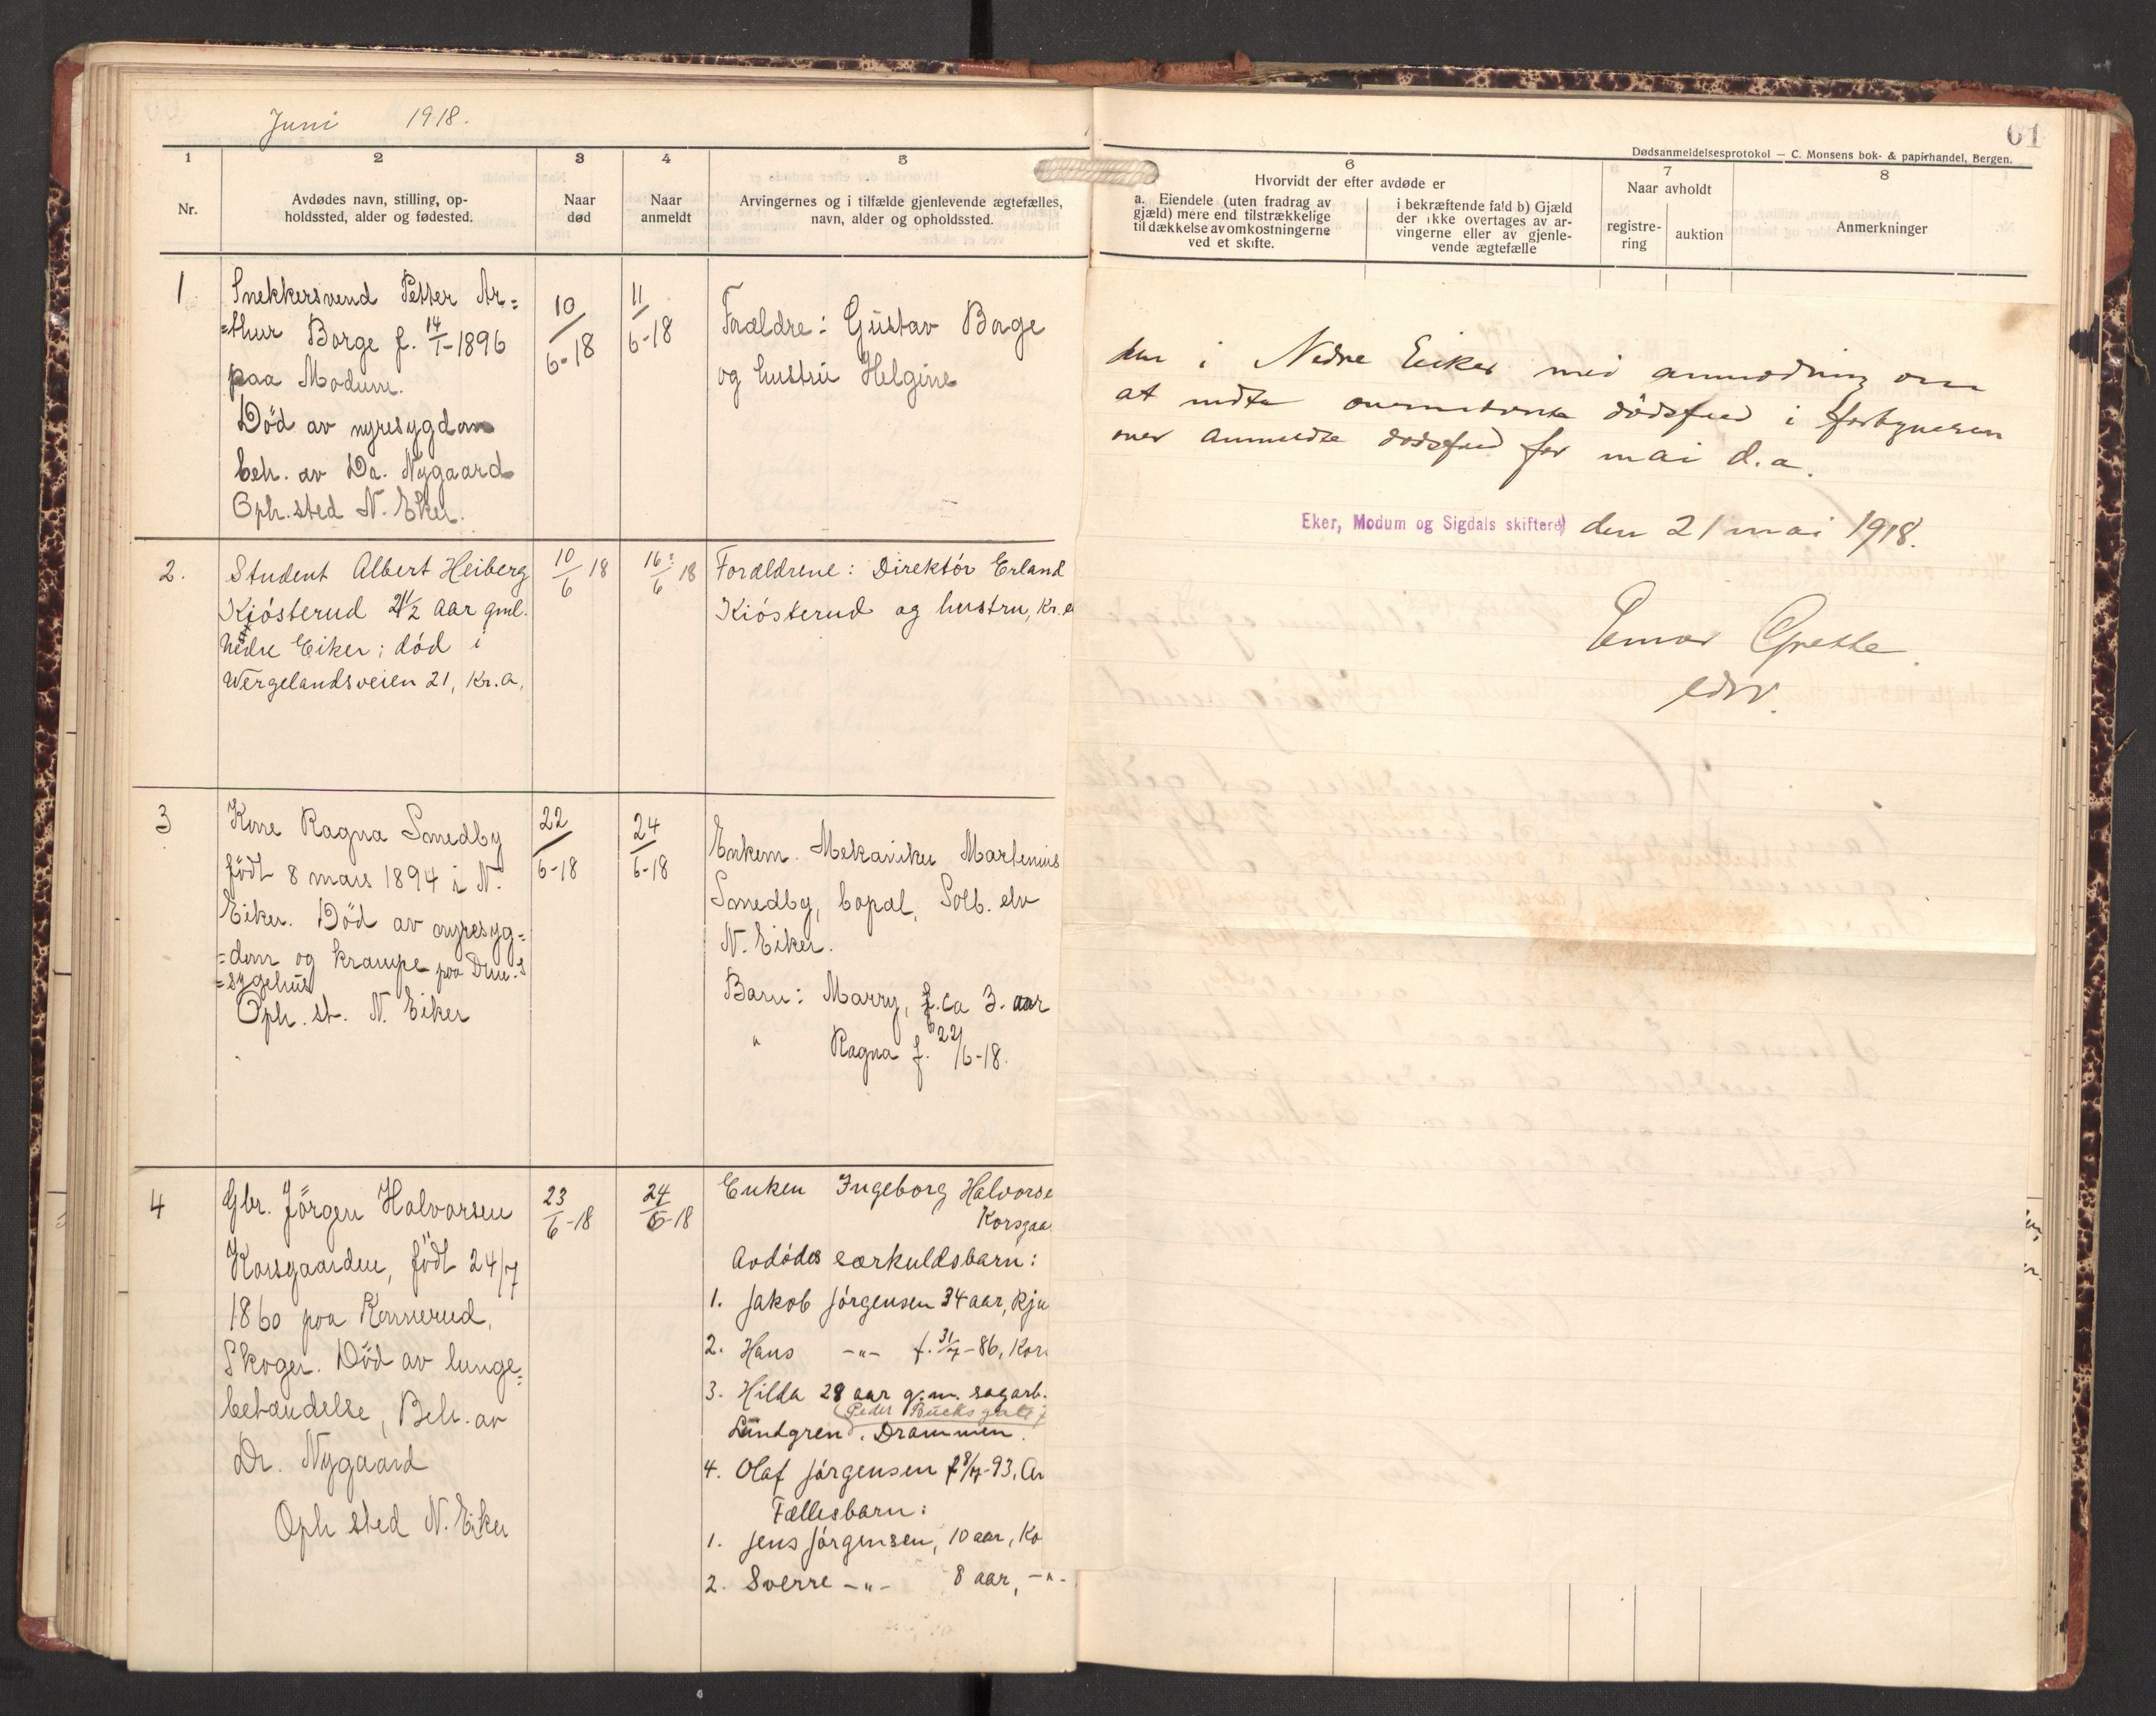 Juni 1918.
1
2
3
4
5
Nr.
Avdødes navn, stilling, op-
holdssted, alder og fødested.
Naar
død
Naar
anmeldt
Arvingernes og i tilfælde gjenlevende ægtefælles,
navn, alder og opholdssted.
1
Snekkersvend Petter Ar=
=thur Borge f. 14/1-1896
paa Modum.
Död av nyresygdom
beh. av Dr. Nygaard
Oph. sted N. Eker.
10/6-18
11/6-18
Forældre: Gustav Borge
og hustru Helgine
2.
Student Albert Heiberg
Kiösterud 21 1/2 aar gml.
Nedre Eiker; död i
Wergelandsveien 21, Kr.a,
10/6 18
16/6 18
Forældrene: Direktör Erland
Kiösterud og hustru, Kr.a
3
Kone Ragna Smedby
födt 8 mars 1894 i N.
Eiker. Död av nyresyg=
=dom og krampe paa Dm.s
=sygehus
Oph. st. N. Eiker
22/6-18
24/6-18
Enkem. Mekaniker Martenius
Smedby, bopæl, Solb. elv
N. Eiker.
Barn: Marry, f. ca 3. aar
" Ragna f. 22/6-18.
4
Gbr. Jörgen Halvorsen
Korsgaarden, födt 24/7
1860 paa Konnerud,
Skoger. Död av lunge=
betændelse, Beh. av
Dr. Nygaard
Oph sted N. Eiker
23/6-18
24/6-18
Enken Ingeborg Halvorse
Korsgaa
Avdödes særkuldsbarn:
1. Jakob Jörgensen 34 aar, Rju
2. Hans -"- f. 31/7-86, Kor
3. Hilda 28 aar g.m. sagarb.
(Peder Bucks gate
Lundgren, Drammen.
4. Olaf Jörgensen f 8/7-93, Ar
Fællesbarn:
1. Jens Jörgensen, 10 aar, Ko
2. Sverre -"- 8 aar, -"-
61
Dødsanmeldelsesprotokol — C. Monsens bok- & papirhandel, Bergen.
6
7
8
Hvorvidt der efter avdøde er
a. Eiendele (uten fradrag av
gjæld) mere end tilstrækkelige
til dækkelse av omkostningerne
ved et skifte.
i bekræftende fald b) Gjæld
der ikke overtages av ar-
vingerne eller av gjenle-
vende ægtefælle
Naar avholdt
registre-
ring
auktion
Anmerkninger
i Nedre Eiker med anmodning om
at indta ovennævnte dödsfald i fortegnelsen
over anmeldte dödsfald for mai d.a.
Eker, Modum og Sigdals skifteret den 21 mai 1918.
Einar Grette
edsv.